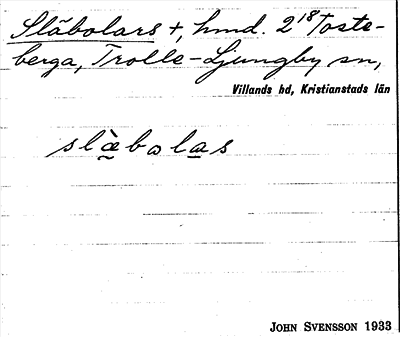 Släbolars †, hmd. 2¹⁸ Toste-
berga, Trolle-Ljungby sn,
Villands hd, Kristianstads län
slæ̀bɷlas
JOHN SVENSSON 1933